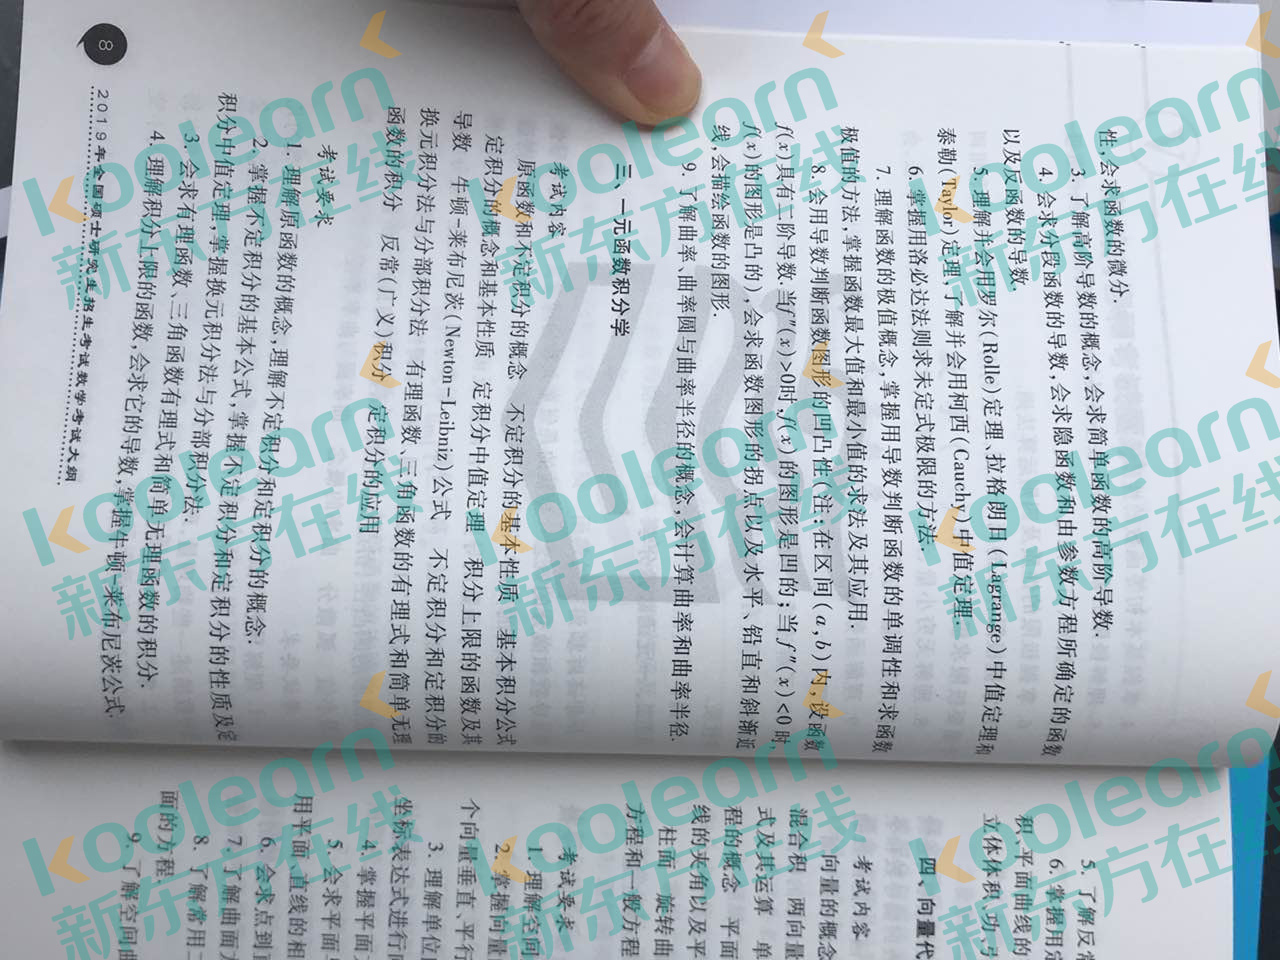 性,会求函数的微分.
3. 了解高阶导数的概念,会求简单函数的高阶导数.
4. 会求分段函数的导数,会求隐函数和由参数方程所确定的函数
以及反函数的导数.
5. 理解并会用罗尔(Rolle)定理、拉格朗日(Lagrange)中值定理和
泰勒(Taylor)定理,了解并会用柯西(Cauchy)中值定理.
6. 掌握用洛必达法则求未定式极限的方法.
7. 理解函数的极值概念,掌握用导数判断函数的单调性和求函数
极值的方法,掌握函数最大值和最小值的求法及其应用.
8. 会用导数判断函数图形的凹凸性(注:在区间(a,b)内,设函数
f(x)具有二阶导数.当f″(x)>0时,f(x)的图形是凹的;当f″(x)<0时,
f(x)的图形是凸的),会求函数图形的拐点以及水平、铅直和斜渐近
线,会描绘函数的图形.
9. 了解曲率、曲率圆与曲率半径的概念,会计算曲率和曲率半径.
三、一元函数积分学
考试内容
原函数和不定积分的概念 不定积分的基本性质 基本积分公式
定积分的概念和基本性质 定积分中值定理 积分上限的函数及其
导数 牛顿-莱布尼茨(Newton-Leibniz)公式 不定积分和定积分的
换元积分法与分部积分法 有理函数、三角函数的有理式和简单无理
函数的积分 反常(广义)积分 定积分的应用
考试要求
1. 理解原函数的概念,理解不定积分和定积分的概念.
2. 掌握不定积分的基本公式,掌握不定积分和定积分的性质及定
积分中值定理,掌握换元积分法与分部积分法.
3. 会求有理函数、三角函数有理式和简单无理函数的积分.
4. 理解积分上限的函数,会求它的导数,掌握牛顿-莱布尼茨公式.
8
2019年全国硕士研究生招生考试数学考试大纲
5. 了解反常
6. 掌握用定
积、平面曲线的
立体体积、功、引
四、向量代
考试内容
向量的概念
混合积 两向量
式及其运算 单
程的概念 平面
线的夹角以及平
柱面 旋转曲
方程和一般方程
考试要求
1. 理解空间
2. 掌握向量
个向量垂直、平行
3. 理解单位
坐标表达式进行向
4. 掌握平面
5. 会求平面与
用平面、直线的相
6. 会求点到直
7. 了解曲面方
8. 了解常用二
面的方程.
9. 了解空间曲
koolearn
新东方在线
koolearn
新东方在线
koolearn
新东方在线
koolearn
新东方在线
koolearn
新东方在线
koolearn
新东方在线
koolearn
新东方在线
koolearn
新东方在线
koolearn
新东方在线